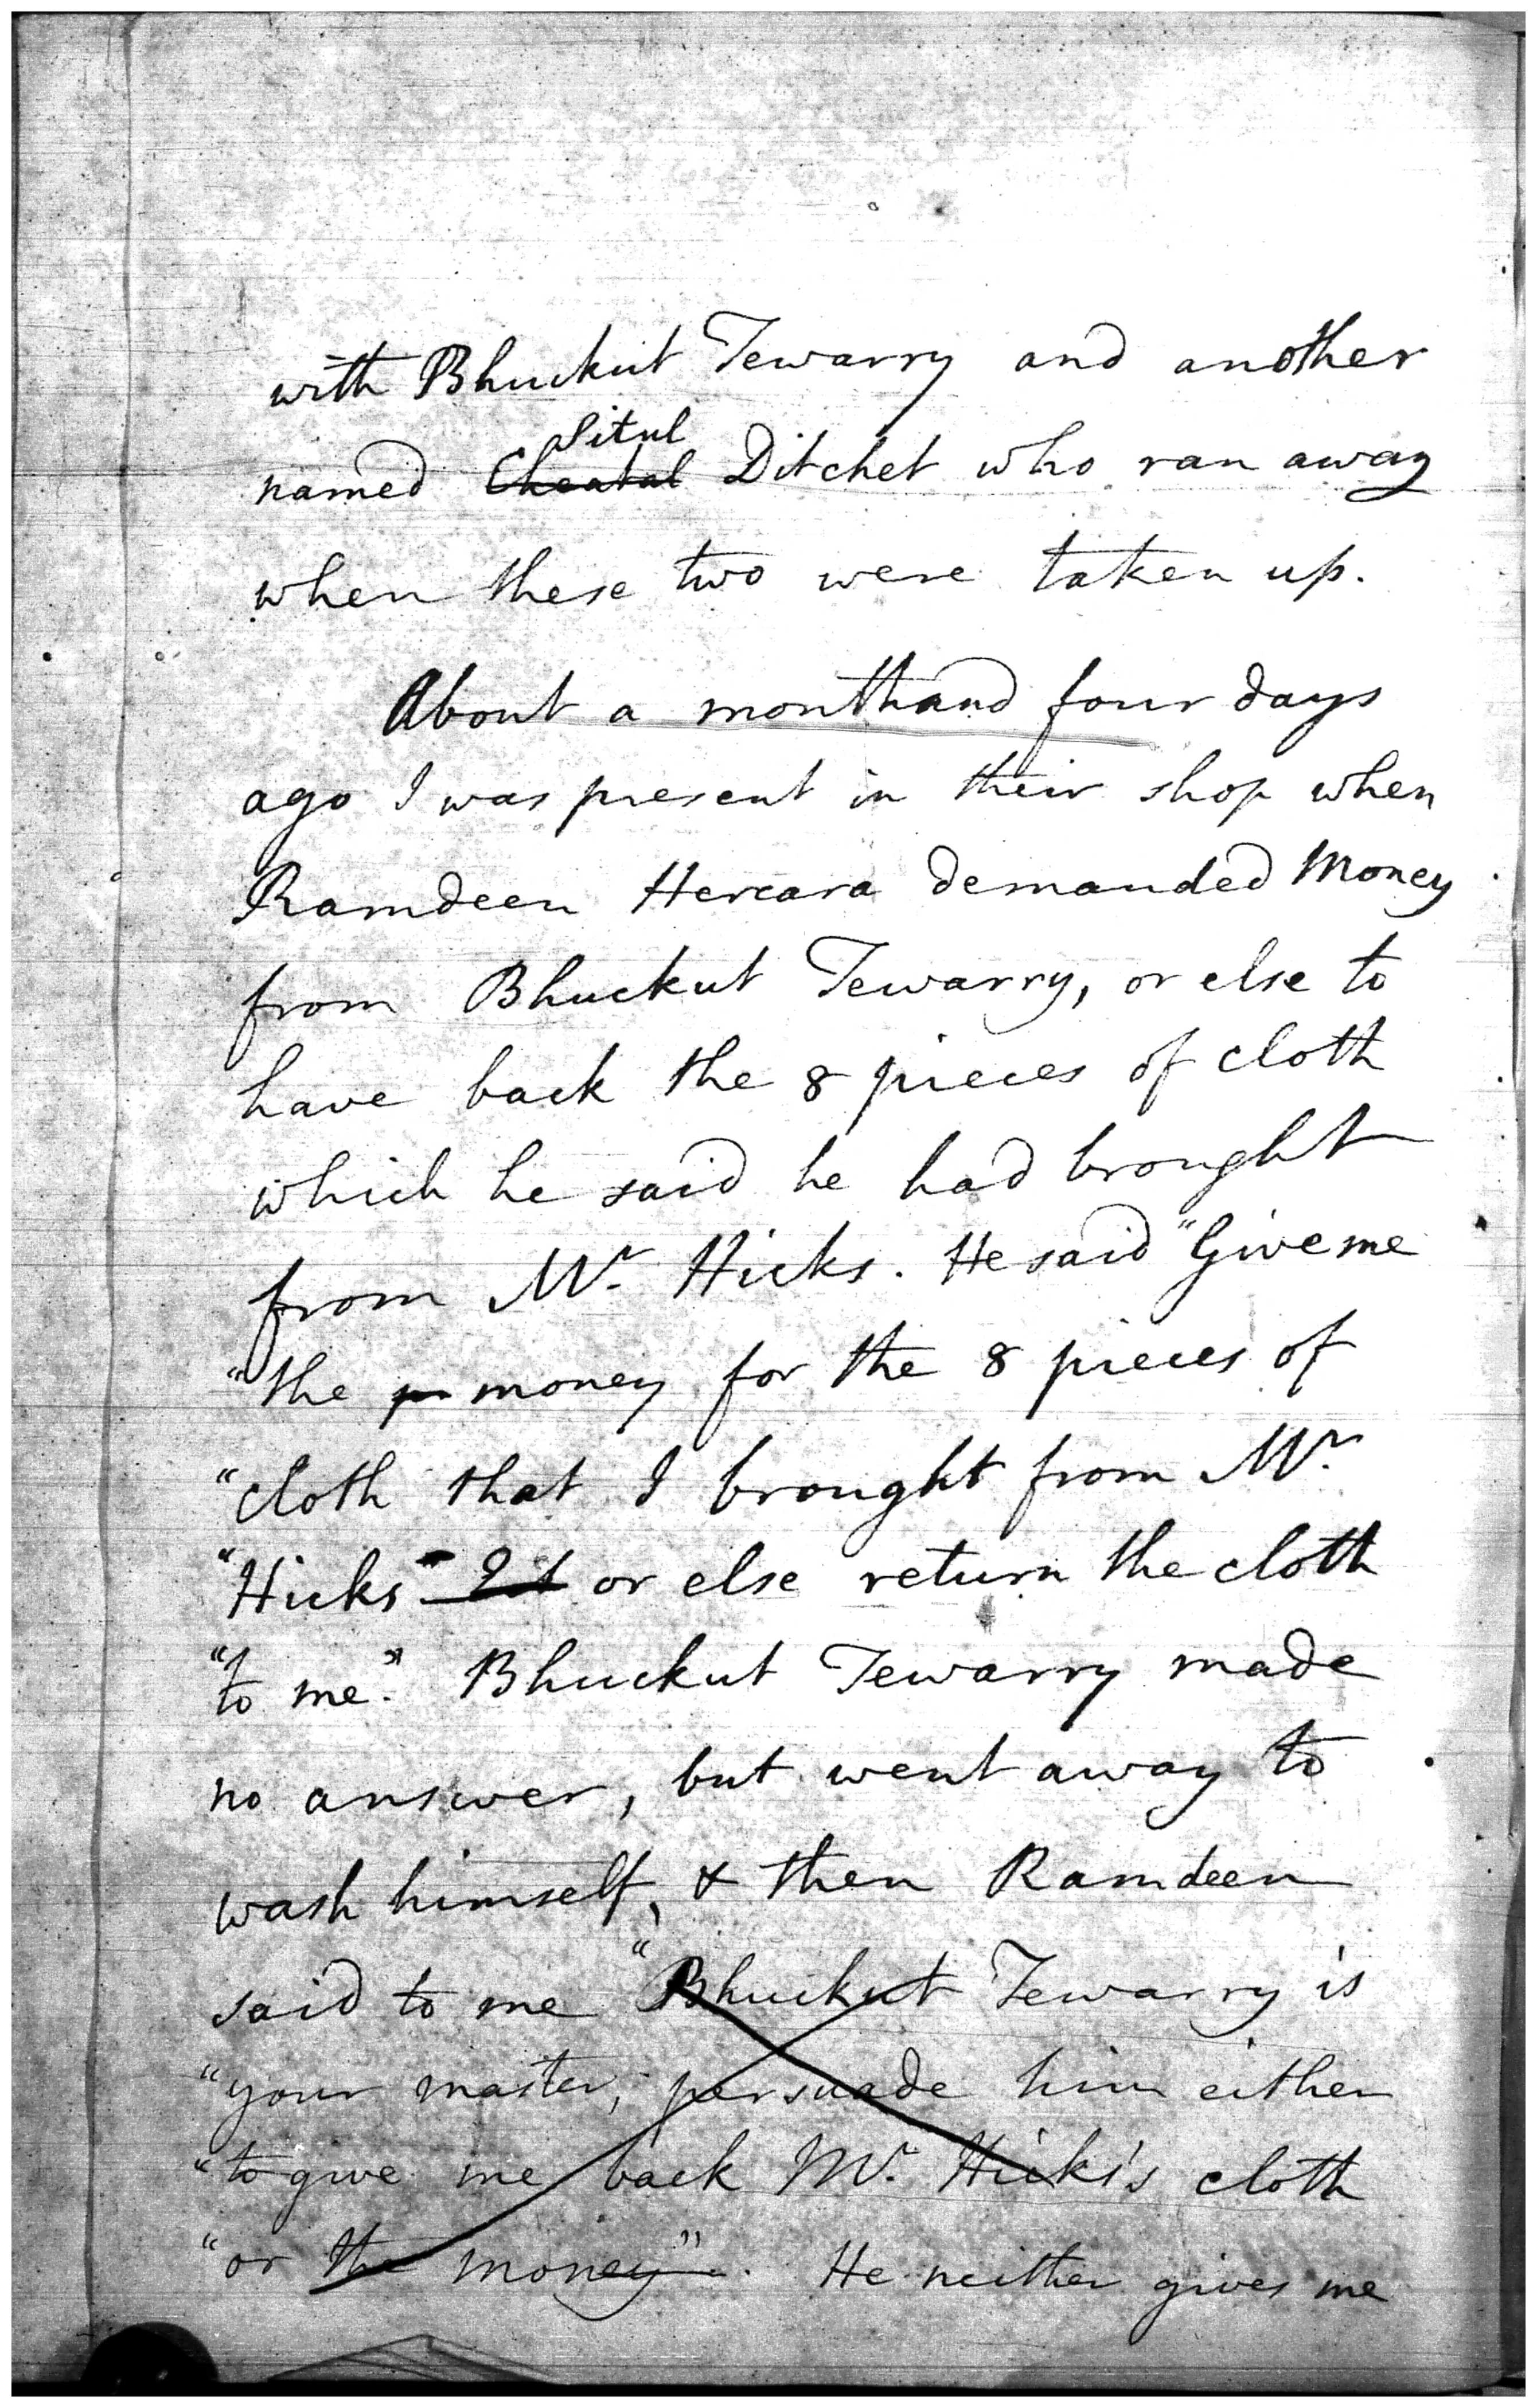 with Bhuckut Tewarry and another
Situl
named Cheatal Ditchet who ran away
when these two were taken up.
About a month and four days
ago I was present in their shop when
Ramdeen Hercara demanded Money
from Bhuckut Tewarry, or else to
have back the 8 pieces of cloth
which he said he had brought
from Mr. Hicks. He said "Give me
"the p money for the 8 pieces of
"cloth that I brought from Mr.
"Hicks" or else return the cloth
"to me." Bhuckut Tewarry made
no answer, but went away to
wash himself, & then Ramdeen
said to me "Bhuckut Tewarry is
"your master, persuade him either
"to give me back Mr. Hicks's cloth
"or the money". He neither gives me